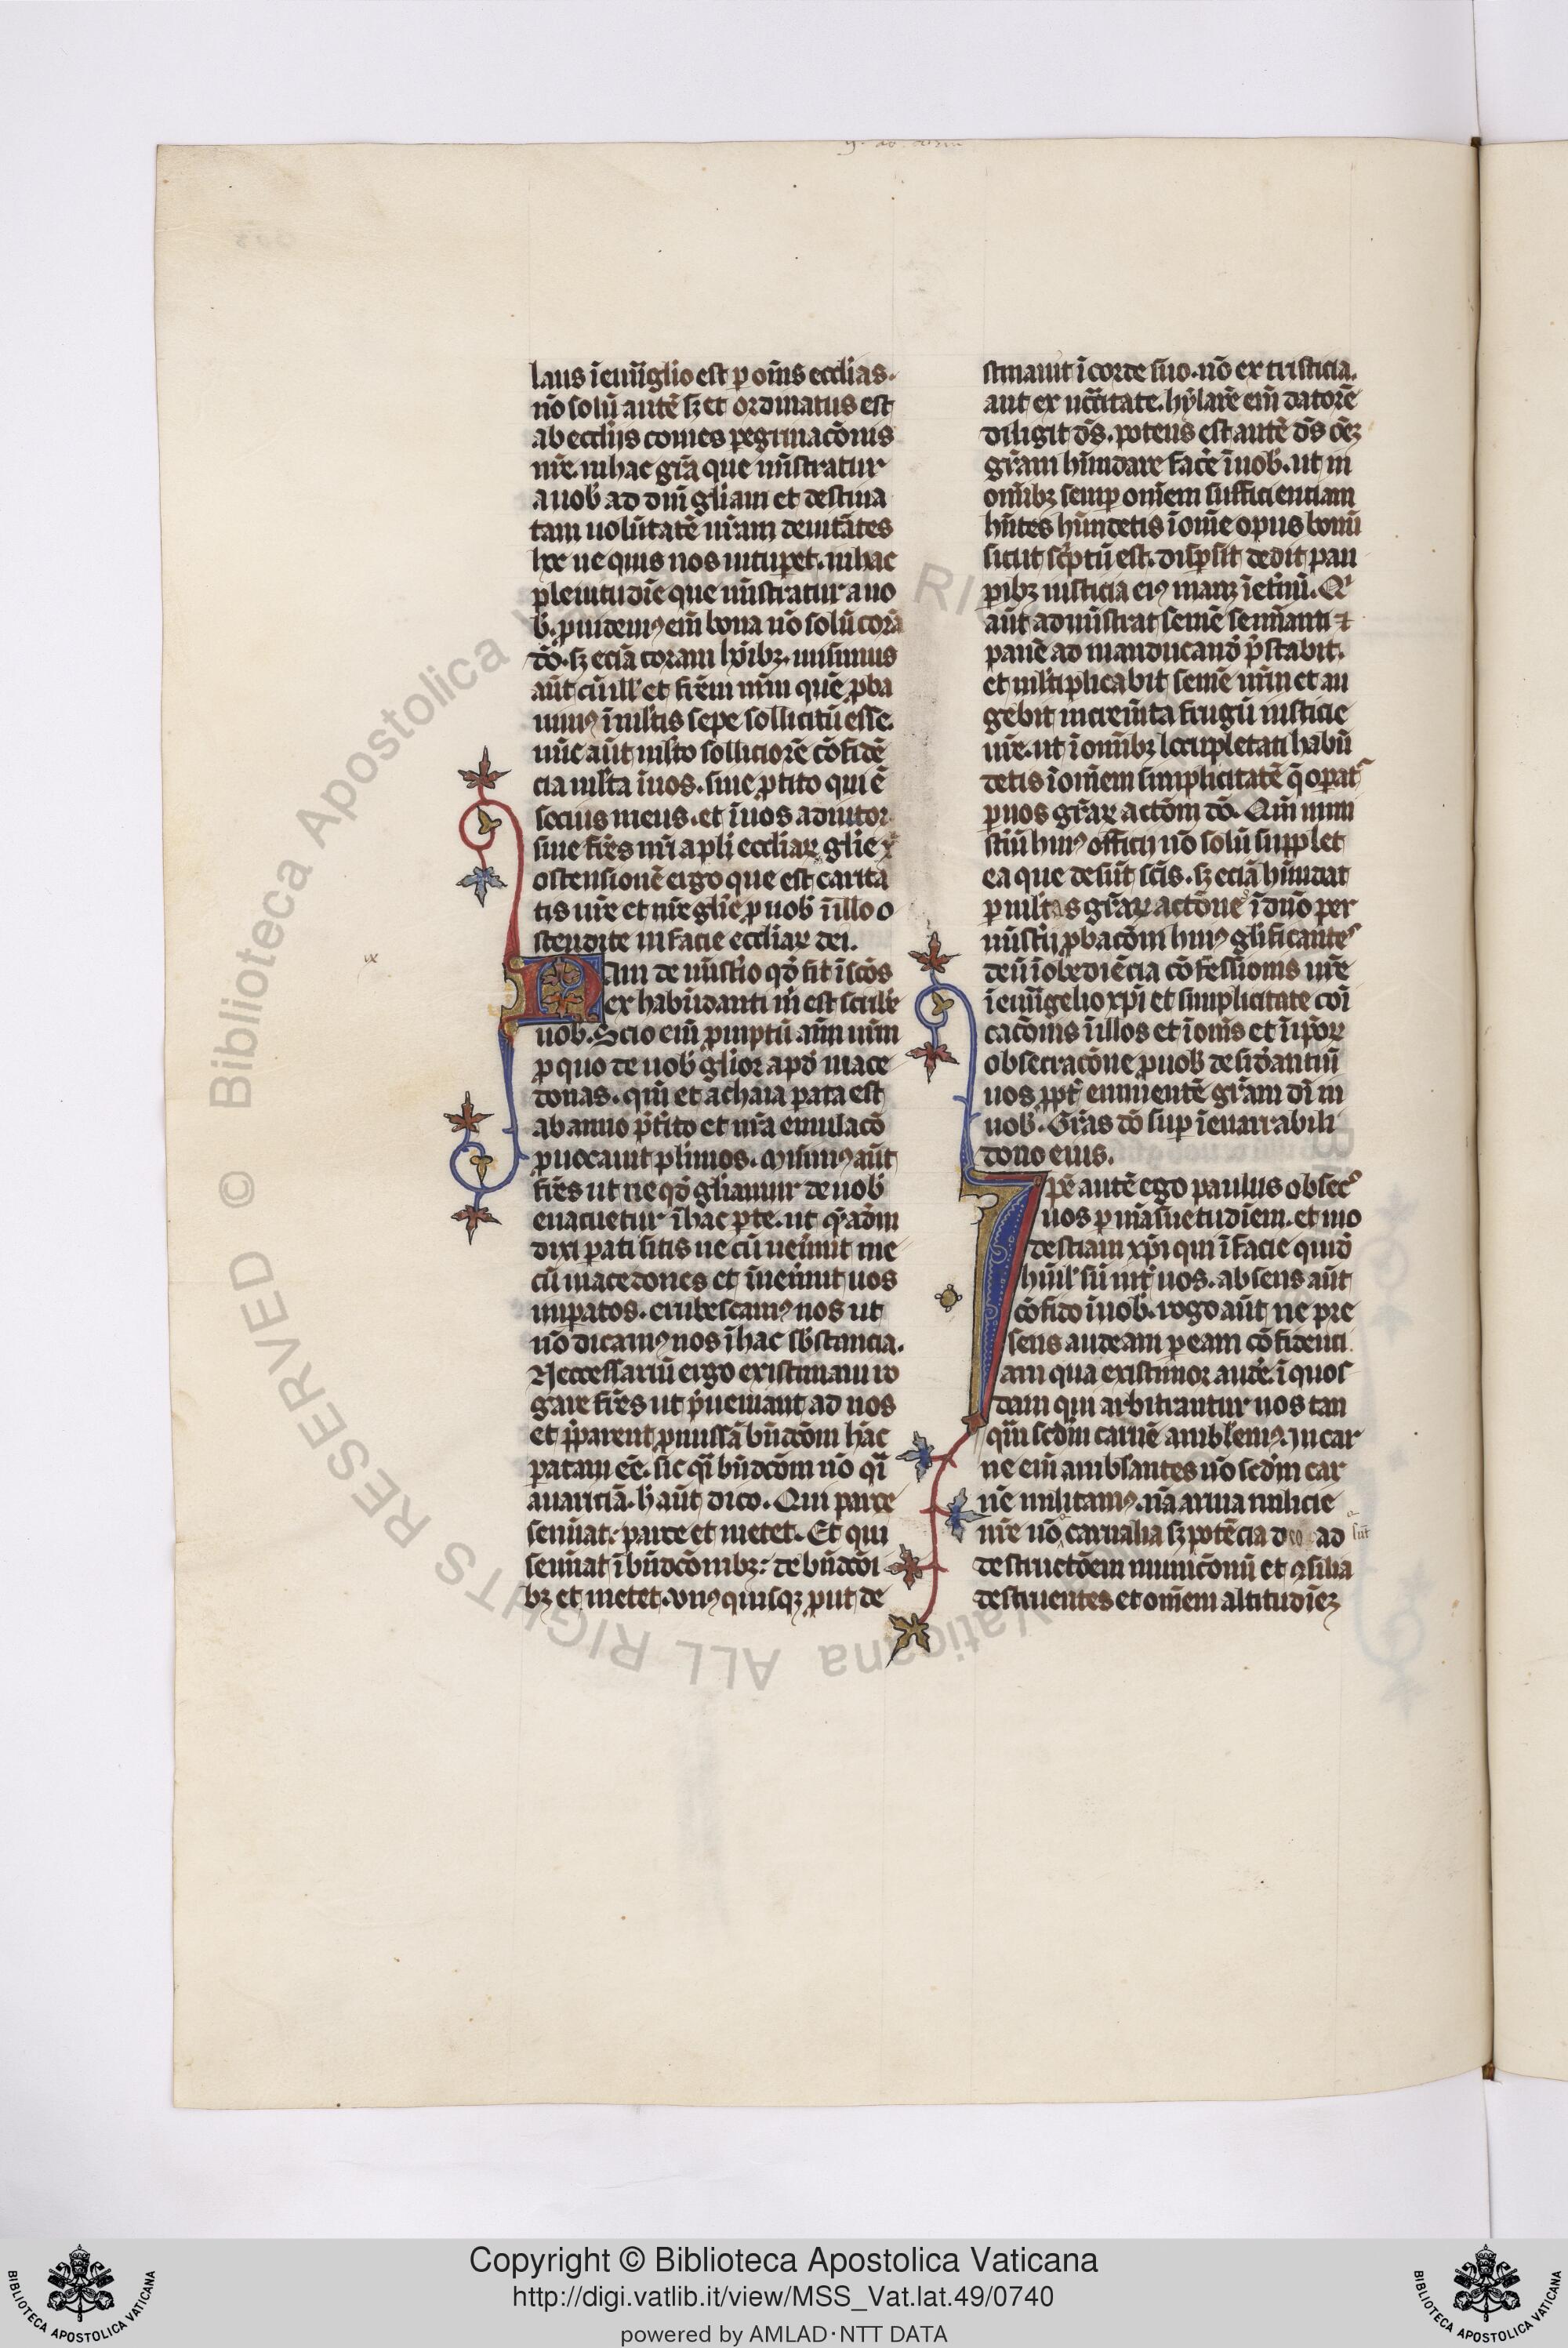 laus ī euu̅glio est p om̅s eccl̅ias.
nō solū autē sȝ et ordinatus est
ab eccl̅ijs comes peg̅nacōnis
nr̅e. in hac gr̅a que mi̅stratur
a uob̅ ad dn̅i gl̅iam et destina
tam uolūtatē nr̅am deuitātes
hoc ne quis nos uitup̅et. in hac
plenitudīe que mi̅stratur a uo
b̅. p̱uidemꝰ em̅ bona nō solū corā
dō. sȝ eciā coram ho̅ībȝ. misimus
aūt cū ill̅ et fr̅em nr̅m quē p̱ba
uimꝰ ī mltis sepe sollicitū esse.
nūc aūt mlto sollicitorē cōfidē
cia mlta ī uos. siue p̱ tito qui ē
socius meus. et ī uos adiutor.
siue fr̅es nr̅i apl̅i eccl̅iaꝝ gl̅ie x̅
ostensionē ergo que est carita
tis ur̅e et nr̅e gl̅ie p̱ uob̅ ī illo o
stendite in facie eccl̅iaꝝ dei.
ix
Nam de mi̅st̅io qd̅ fit ī sc̅os
ex habūdanti m̅ est scribe̅
uob̅. Scio em̅ p̱mptū aīm ur̅m
p̱ quo de uob̅ gl̅ior apd̅ mace
donas. qm̅ et achaia pata est
ab anno p̅t̅ito et ur̅a emulacō
p̱uocauit pl̅imos. Misimꝰ aūt
fr̅es ut ne qd̅ gl̅iamur de uob̅
euacuetur ī hac p̱te. ut q̅adm̅
dixi pati sitis ne cū uen̅int me
cū macedones et īuen̅int uos
inpatos. erubescamꝰ nos ut
nō dicamꝰ uos ī hac sb̅stancia.
Neccessariū ergo existimaui ro
gare fr̅es ut p̅ueniant ad uos
et p̅parent p̱missā bn̅dcōm hāc
patam ee̅. sic q̅i bn̅dcōm nō q̅i
auariciā. h̅ aūt dico. Qui parce
semīat: parce et metet. Et qui
semīat ī bn̅dcōnibȝ: de bn̅dcōī
bȝ et metet. vnꝰquisqȝ p̱ut de
stinauit ī corde suo. nō ex tristicia.
aut ex necc̅itate. hylarē em̅ datorē
diligit ds̅. potens est autē ds̅ oēȝ
gr̅am hūndare facē ī uob̅. ut in
omībȝ semp̱ om̅em sufficienciam
hn̅tes hūndetis ī om̅e opus bonū
sicut sc̅ptū est. disp̱sit dedit pau
p̱ibȝ iusticia eiꝰ manȝ ī et̅nū. Qi
aūt admi̅strat semē semīanti ⁊
panē ad manducandū p̅stabit.
et ml̅tiplicabit semē ur̅m et au
gebit increm̅ta frugū iusticie
ur̅e. ut ī omībȝ locupletati habū
detis ī om̅em simplicitatē q̅ opat̅
p̱ nos gr̅aꝝ actōm dō. Qm̅ mini
st̅iū huiꝰ officij nō solū supplet
ea que desūt scīs. sȝ eciā hūndat
p̱ mltas gr̅aꝝ actōne ī dno̅ per
mi̅st̅ij p̱bacōm huiꝰ gl̅ificantes
deū ī obediēcia cōfessionis ur̅e
ī euu̅gelio xp̅i et simplicitate cōi
cacōnis ī illos et ī om̅s et ī ip̅oꝝ
obsecracōne p̱ uob̅ desid̅antiū
uos p̱pt̅ eminentē gr̅am dī in
uob̅. Gr̅as dō sup ī enarrabili
dono eius.
Ipe̅ autē ego paulus obsec̅
uos p̱ māsuetudīem. et mo
destiam xp̅i qui ī facie quid̅
hu̅il̅ sū int̅ uos. absens aūt
cōfido ī uob̅. rogo aūt ne pre
sens audeam p̱ eam cōfidenci
am qua existimor audē ī quos
dam qui arbitrantur nos tan
q̅m scd̅m carnē ambl̅emꝰ. In car
ne em̅ ambl̅antes nō scd̅m car
nē militamꝰ. nā arma milicie
nr̅e nō carnalia sȝ potēcia deo ad
sūt
destructōem municōnū et ꝯsilia
destruentes et om̅em altitudīeȝ
Copyright © Biblioteca Apostolica Vaticana
http://digi.vatlib.it/view/MSS_Vat.lat.49/0740
powered by AMLAD·NTT DATA
BIBLIOTECA APOSTOLICA VATICANA
BIBLIOTECA APOSTOLICA VATICANA